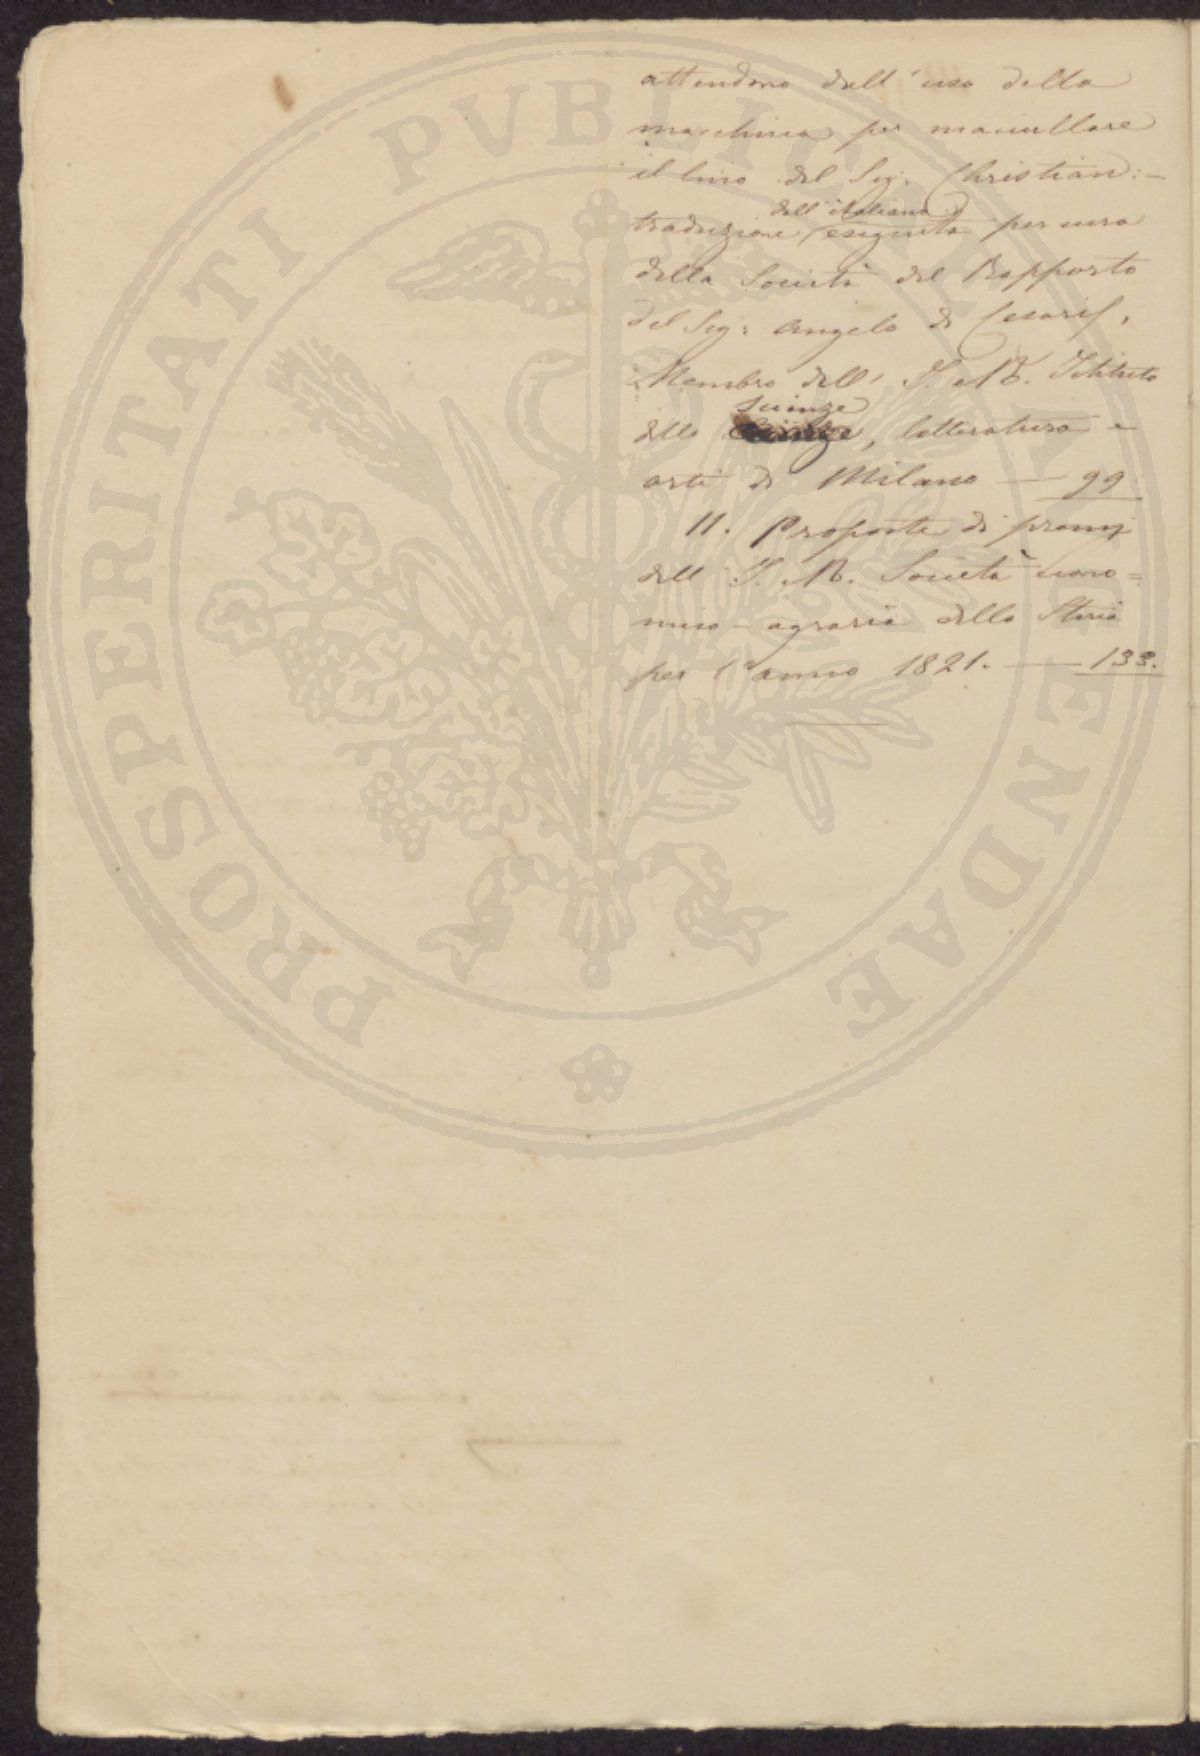 attendono dall'uso della
macchina per maciullare
il lino del Sig. Christian: –
dall'italiano
traduzione eseguita per cura
della Società del Rapporto
del Sig: Angelo de Cesaris,
Membro dell' I. R. Istituto
scienze
delle scienze, letteratura e
arti di Milano — 99
11. Proposte di premj
dell I. R. Società econo=
mico-agraria della Stiria
per l'anno 1821. — 133.
PROSPERITATI PVBLICAE AVGENDAE